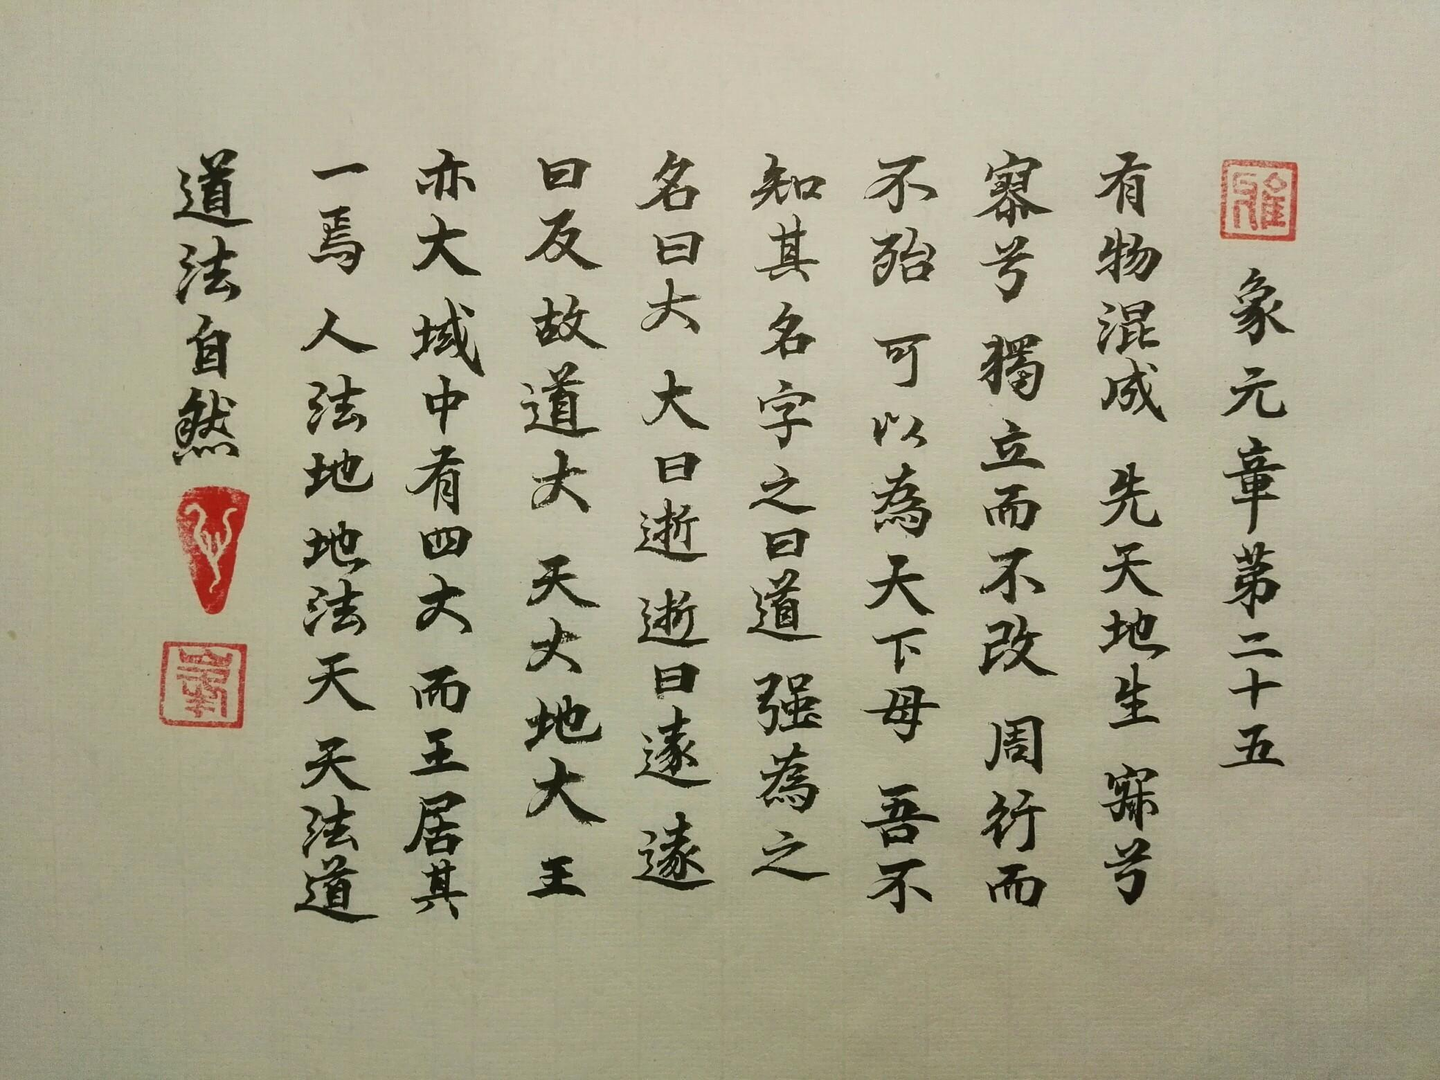 象元章第二十五
有物混成 先天地生 寂兮
寥兮 獨立而不改 周行而
不殆 可以為天下母 吾不
知其名 字之曰道 强為之
名曰大 大曰逝 逝曰遠 遠
曰反 故道大 天大地大 王
亦大 域中有四大 而王居其
一焉 人法地 地法天 天法道
道法自然